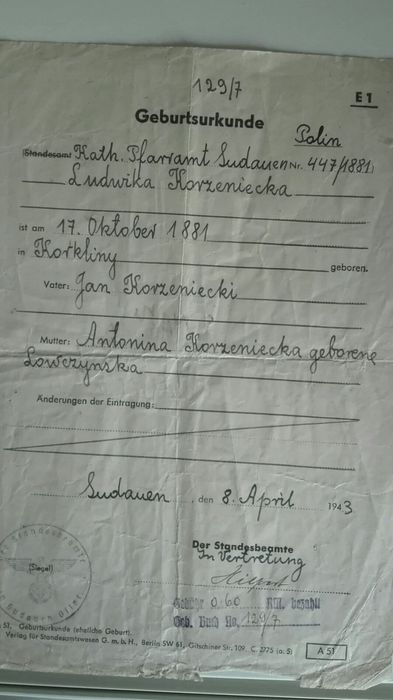 129/7
E 1
Geburtsurkunde
Polin
(Standesamt Kath. Pfarramt Sudauen Nr. 447/1881)
Ludwika Korzeniecka
ist am 17. Oktober 1881
in Korkliny geboren.
Vater: Jan Korzeniecki
Mutter: Antonina Korzeniecka geborene
Lowczynska
Änderungen der Eintragung:
Sudauen, den 8. April 1943
Der Standesbeamte
In Vertretung
(Siegel)
Gebühr 0.60 RM. bezahlt
Geb. Buch No. 129/7
51. Geburtsurkunde (eheliche Geburt).
Verlag für Standesamtswesen G. m. b. H., Berlin SW 61, Gitschiner Str. 109. C 2775 (a. 5)
A 51